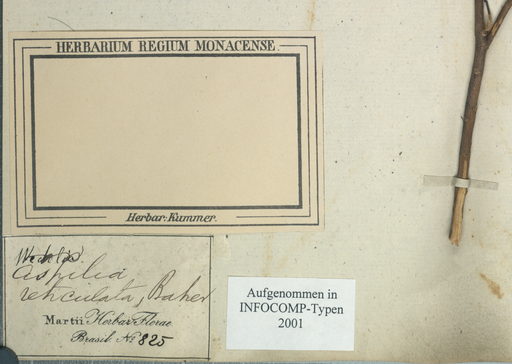 HERBARIUM REGIUM MONACENSE.
Herbar: Kummer.
Aspilia
reticulata, Baker
Martii Herbar. Florae
Brasil. No 825
Aufgenommen in
INFOCOMP-Typen
2001